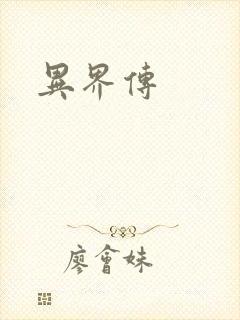 異界傳
廖會妹